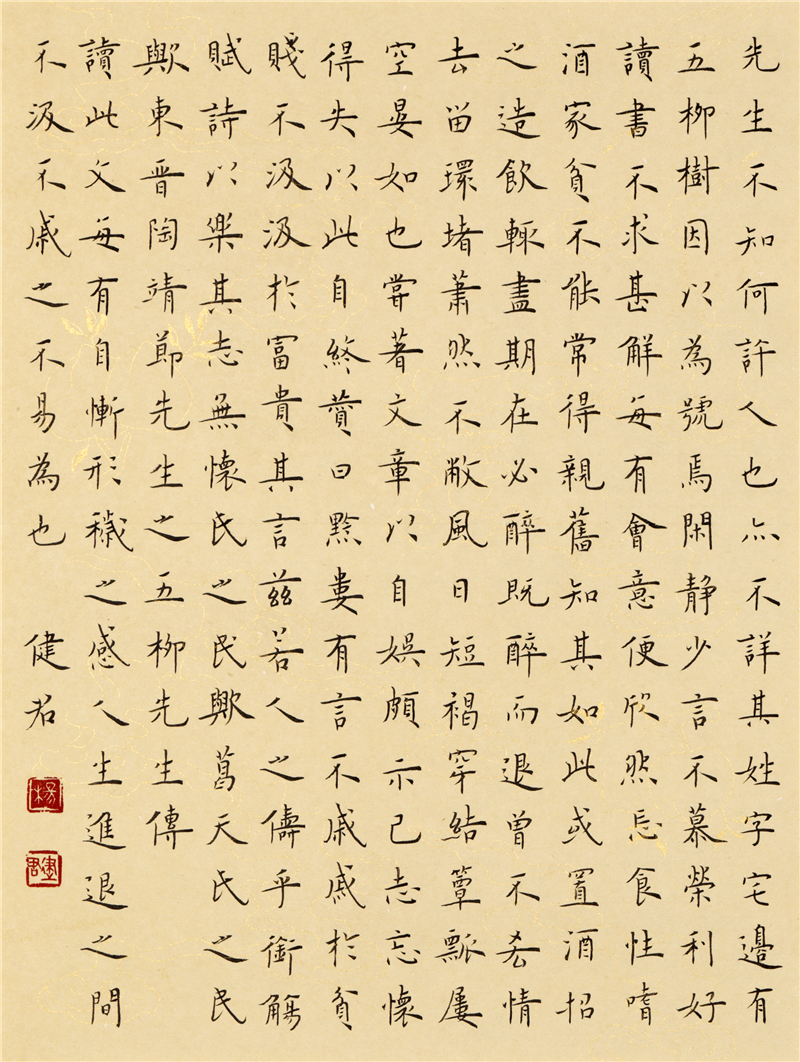 先生不知何許人也亦不詳其姓字宅邊有
五柳樹因以為號焉閑静少言不慕榮利好
讀書不求甚解每有會意便欣然忘食性嗜
酒家貧不能常得親舊知其如此或置酒招
之造飲輒盡期在必醉既醉而退曾不吝情
去留環堵蕭然不敝風日短褐穿結簞瓢屢
空晏如也嘗著文章以自娛頗示己志忘懷
得失以此自終贊曰黔婁有言不戚戚於貧
賤不汲汲於富貴其言兹若人之儔乎銜觴
賦詩以樂其志無懷氏之民歟葛天氏之民
歟東晉陶靖節先生之五柳先生傳
讀此文每有自慚形穢之感人生進退之間
不汲不戚之不易為也 健君
楊